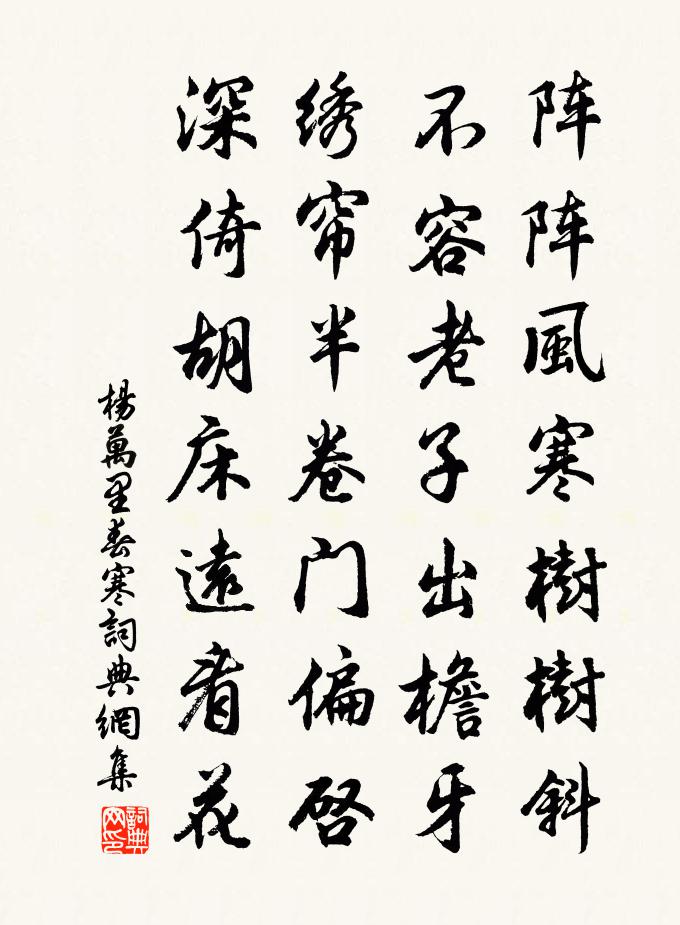 阵阵風寒樹樹斜
不容老子出檐牙
绣帘半卷门偏啓
深倚胡床遠看花
楊萬里春寒詞典網集
詞典网印